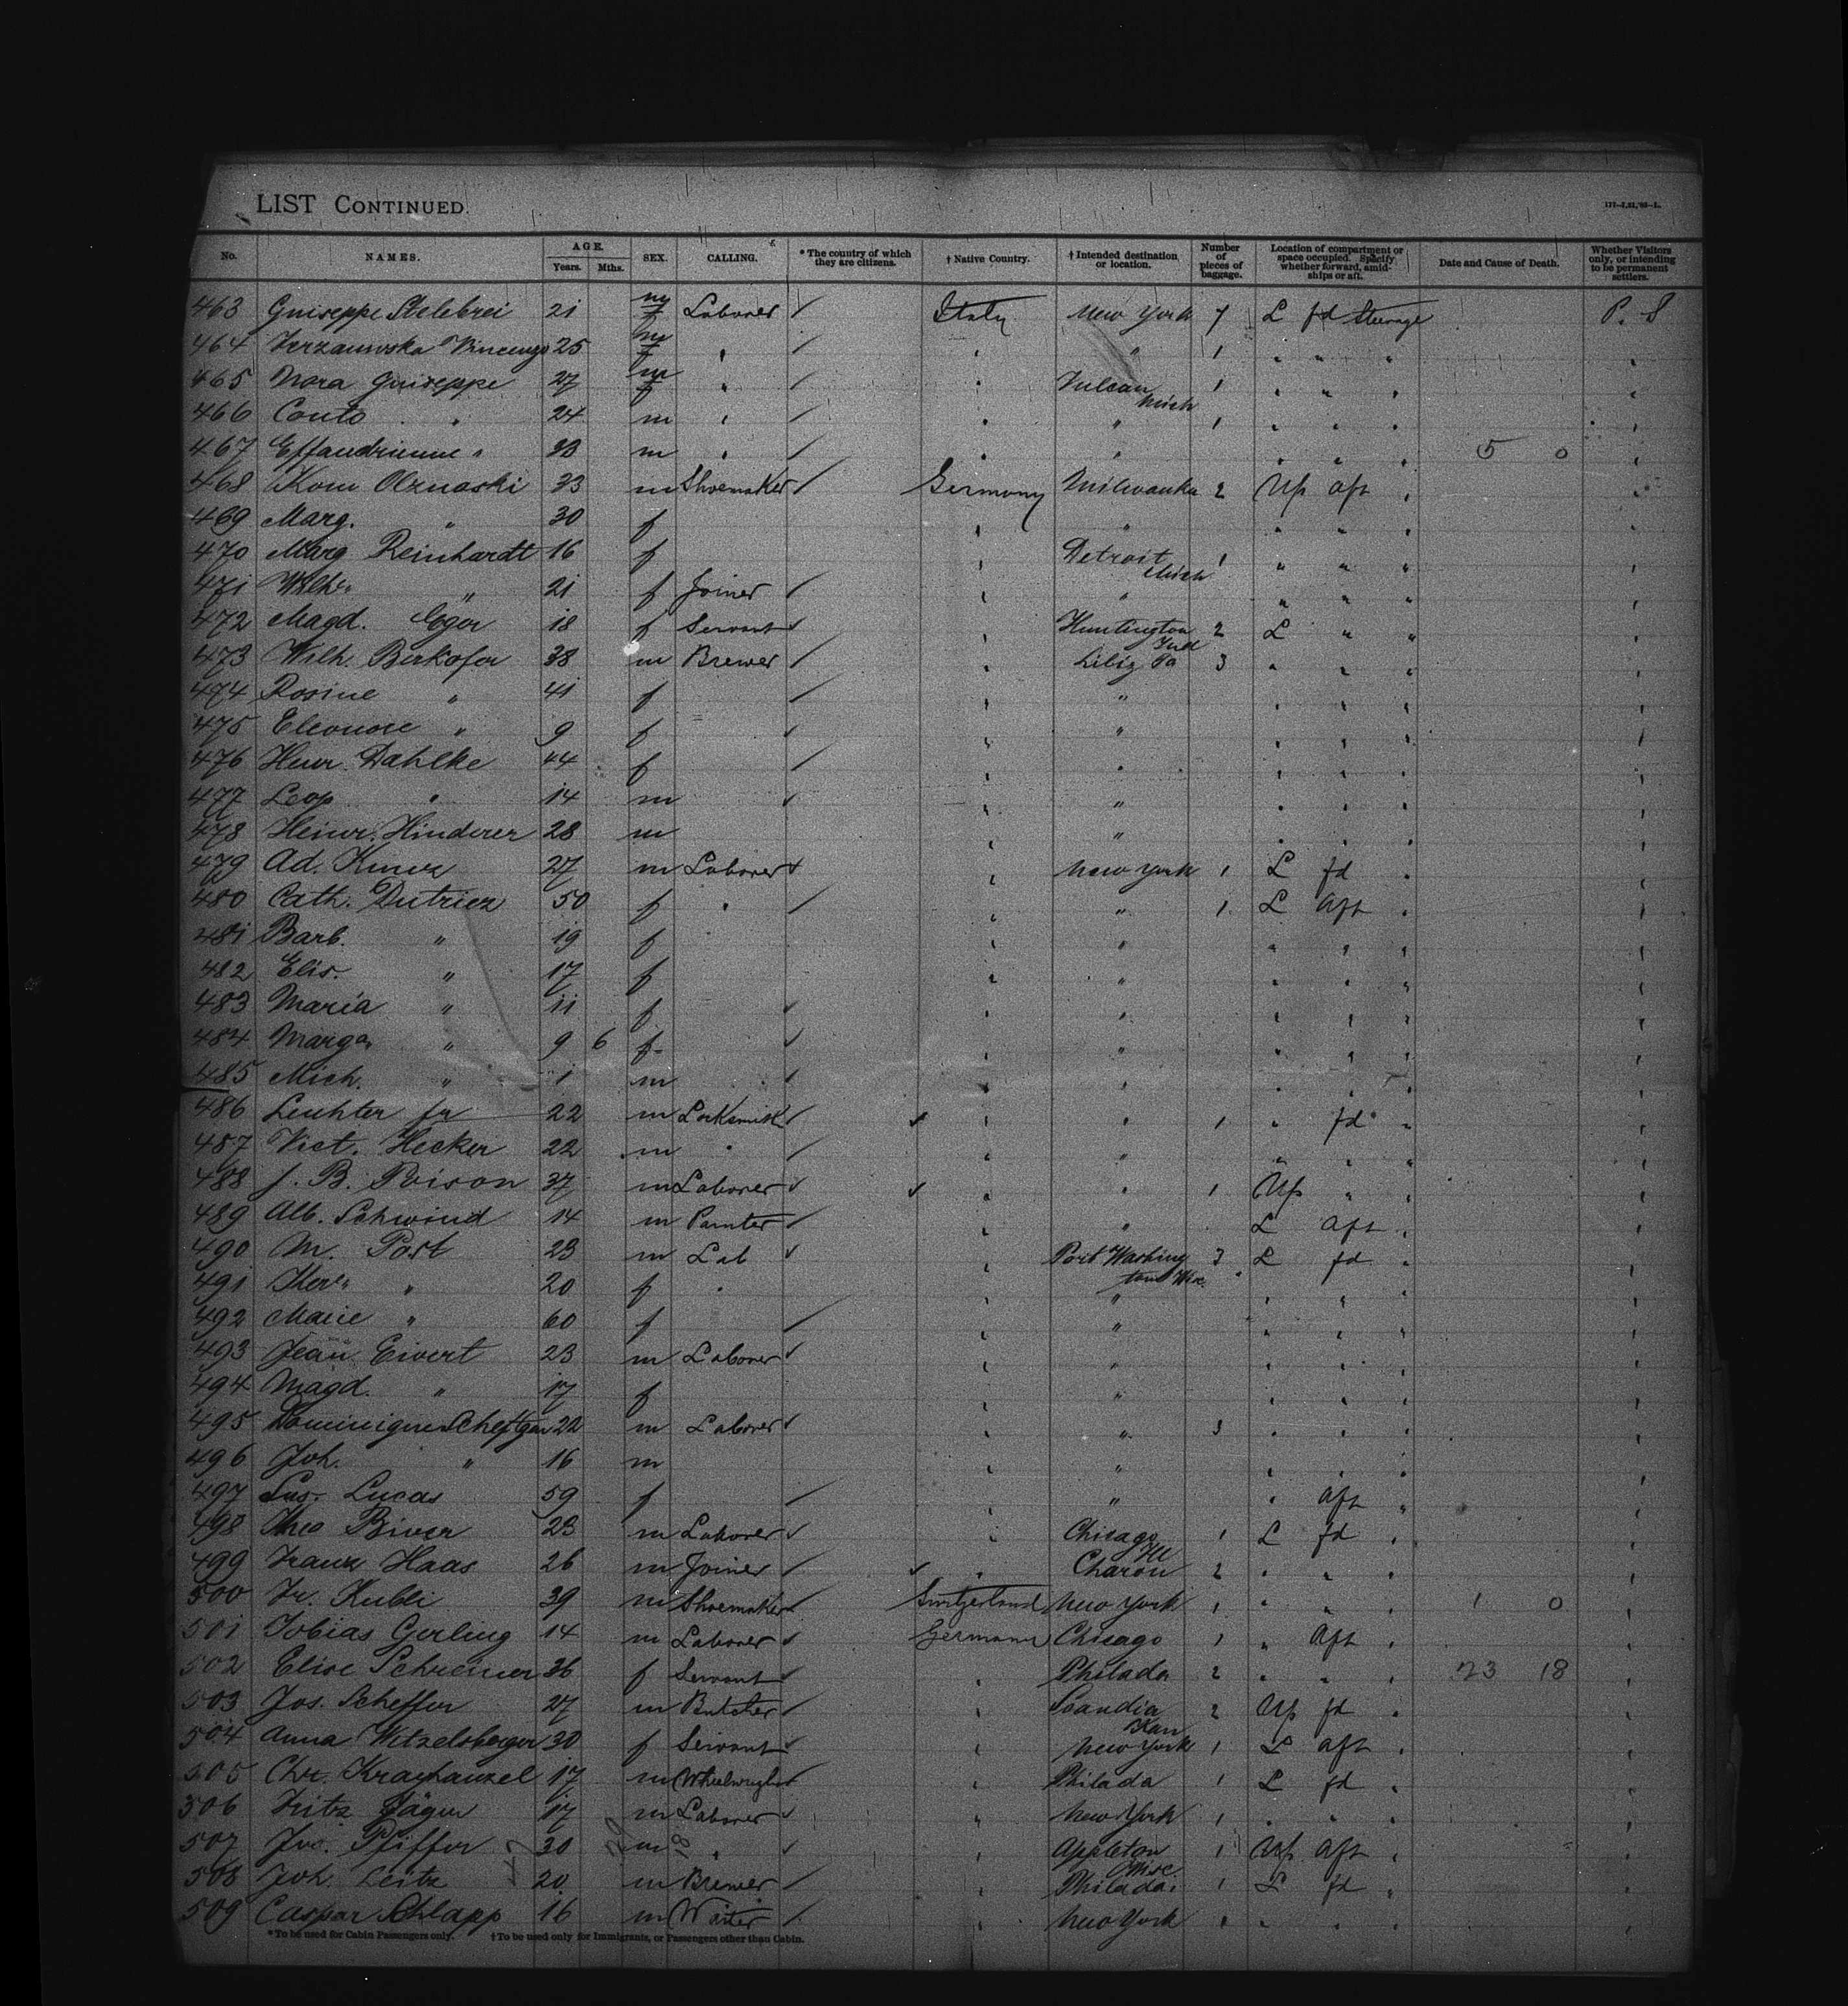 LIST CONTINUED.
No. NAMES. AGE. Years. Mths. SEX. CALLING. * The country of which they are citizens. † Native Country. † Intended destination or location. Number of pieces of baggage. Location of compartment or space occupied. Specify whether forward, amid-ships or aft. Date and Cause of Death. Whether Visitors only, or intending to be permanent settlers.
463 Guiseppe 21 Laborer / Italy New York L fd Steerage P. S
464 Vincenzo 25 " / " " 1 " " "
465 Nora Guiseppe 27 " / " Vulcan Mich 1 " " "
466 Conto " 24 m " / " " 1 " " "
467 " 33 m " / " " " " " 5 0
468 33 m Shoemaker / Germany Milwaukee 2 Up aft "
469 Marg. " 30 f " " " " "
470 Marg Reinhardt 16 f " Detroit Mich 1 " " "
471 Wilh. " 21 f Joiner / " " " " "
472 Magd. Eger 18 f Servant / " Huntington Ind 2 L " "
473 Wilh. Berkofer 38 m Brewer / " Pa 3 " " "
474 Rosine " 41 f / " " " " "
475 Eleonore " 9 f / " " " " "
476 Dahlke 44 f / " " " " "
477 Leop " 14 m / " " " " "
478 Heinr. Hinderer 28 m " " " " "
479 Ad. 27 m Laborer / " New York 1 L fd "
480 Cath. Dutriez 50 f " / " " 1 L aft "
481 Barb. " 19 f " " " " "
482 Elis. " 17 f " " " " "
483 Maria " 11 f / " " " " "
484 Marg. " 9 6 f / " " " " "
485 Mich. " 1 m / " " " " "
486 22 m Locksmith / " " 1 " fd "
487 Vict. Hecker 22 m " / " " " " "
488 J. B. Poison 37 m Laborer / " " 1 Up " "
489 Alb. Schwind 14 m Painter / " " L aft "
490 M. Post 23 m Lab / " Port Washington Wisc. 3 L fd "
491 " 20 f " " " " " "
492 Marie " 60 f / " " " " "
493 Jean Eivert 23 m Laborer / " " " " "
494 Magd. " 17 f " " " " "
495 22 m Laborer / " " 3 " " "
496 Joh. " 16 m " " " " "
497 Lucas 59 f / " " " aft "
498 Theo Biver 23 m Laborer / " Chicago Ill 1 L fd "
499 Franz Haas 26 m Joiner / " 2 " " "
500 Fr. Kubli 39 m Shoemaker / Switzerland New York 1 " " " 1 0
501 Tobias Gerling 14 m Laborer / Germany Chicago 1 " aft "
502 Elise Schreiner 36 f Servant / " Philada 2 " " " 23 18
503 Jos. Scheffer 27 m Butcher / " Scandia Kan 2 Up fd "
504 Anna Witzelsberger 30 f Servant / " New York 1 L aft "
505 Chr. 17 m Wheelwright / " Philada 1 L fd "
506 Fritz Jäger 17 m Laborer / " New York 1 " " "
507 Jos. Pfiffer 30 m " / " Appleton Wisc 1 Up aft "
508 Joh. Leitz 20 m Brewer / " Philada. 1 L fd "
509 Caspar Schlapp 16 m Waiter / " New York " " " "
* To be used for Cabin Passengers only. † To be used only for Immigrants, or Passengers other than Cabin.